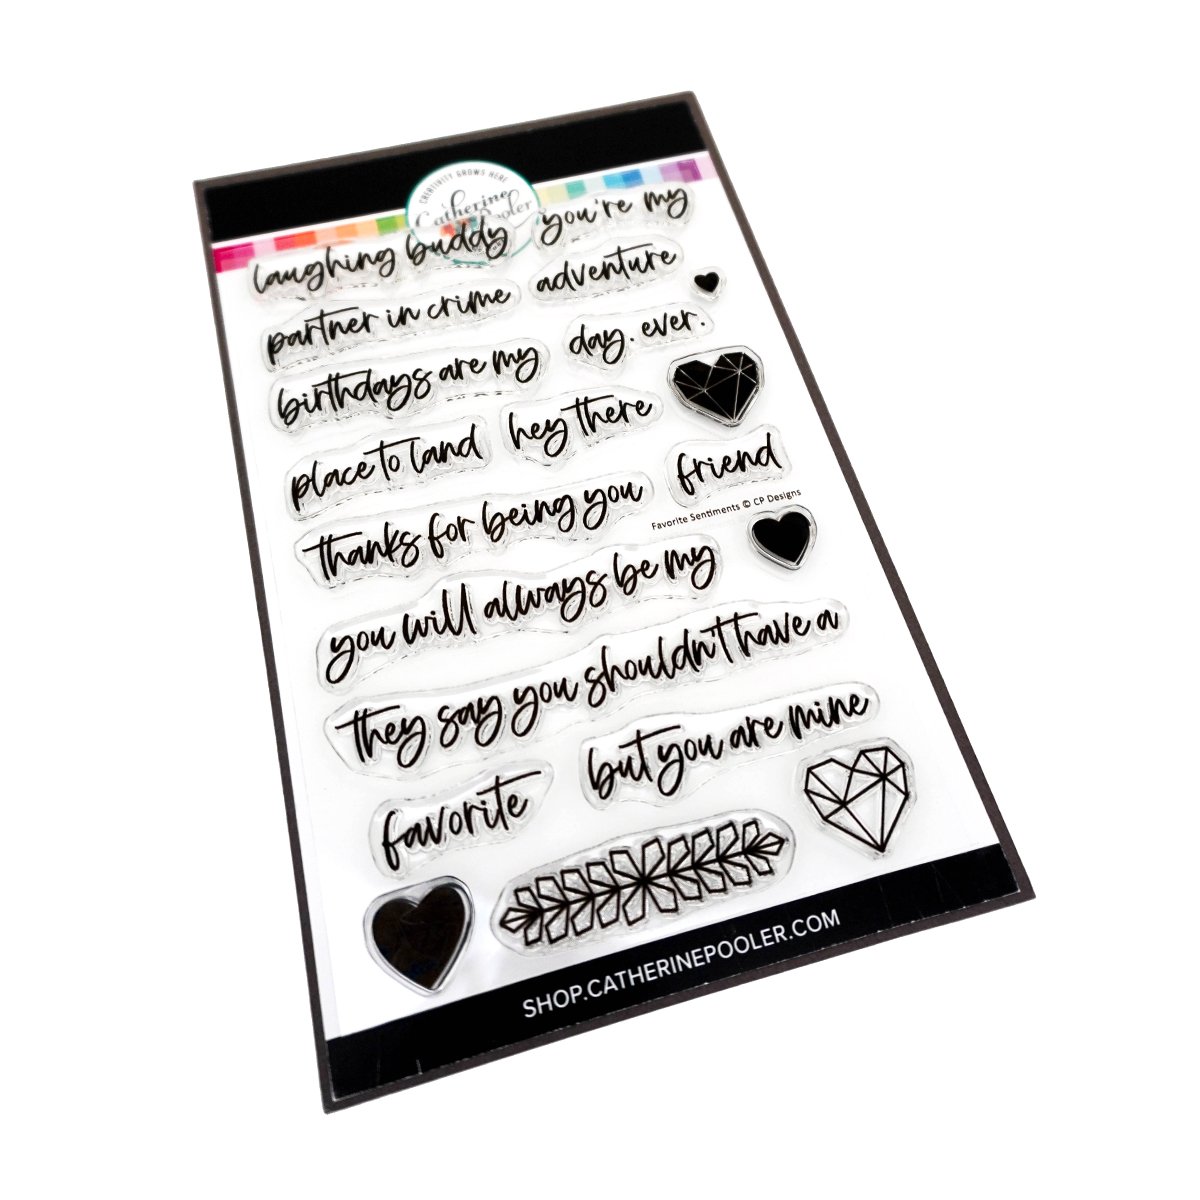 CREATIVITY GROWS HERE
Catherine
Pooler
laughing buddy
you're my
partner in crime
adventure
birthdays are my
day. ever.
place to land
hey there
friend
thanks for being you
Favorite Sentiments © CP Designs
you will always be my
they say you shouldn't have a
but you are mine
favorite
SHOP.CATHERINEPOOLER.COM